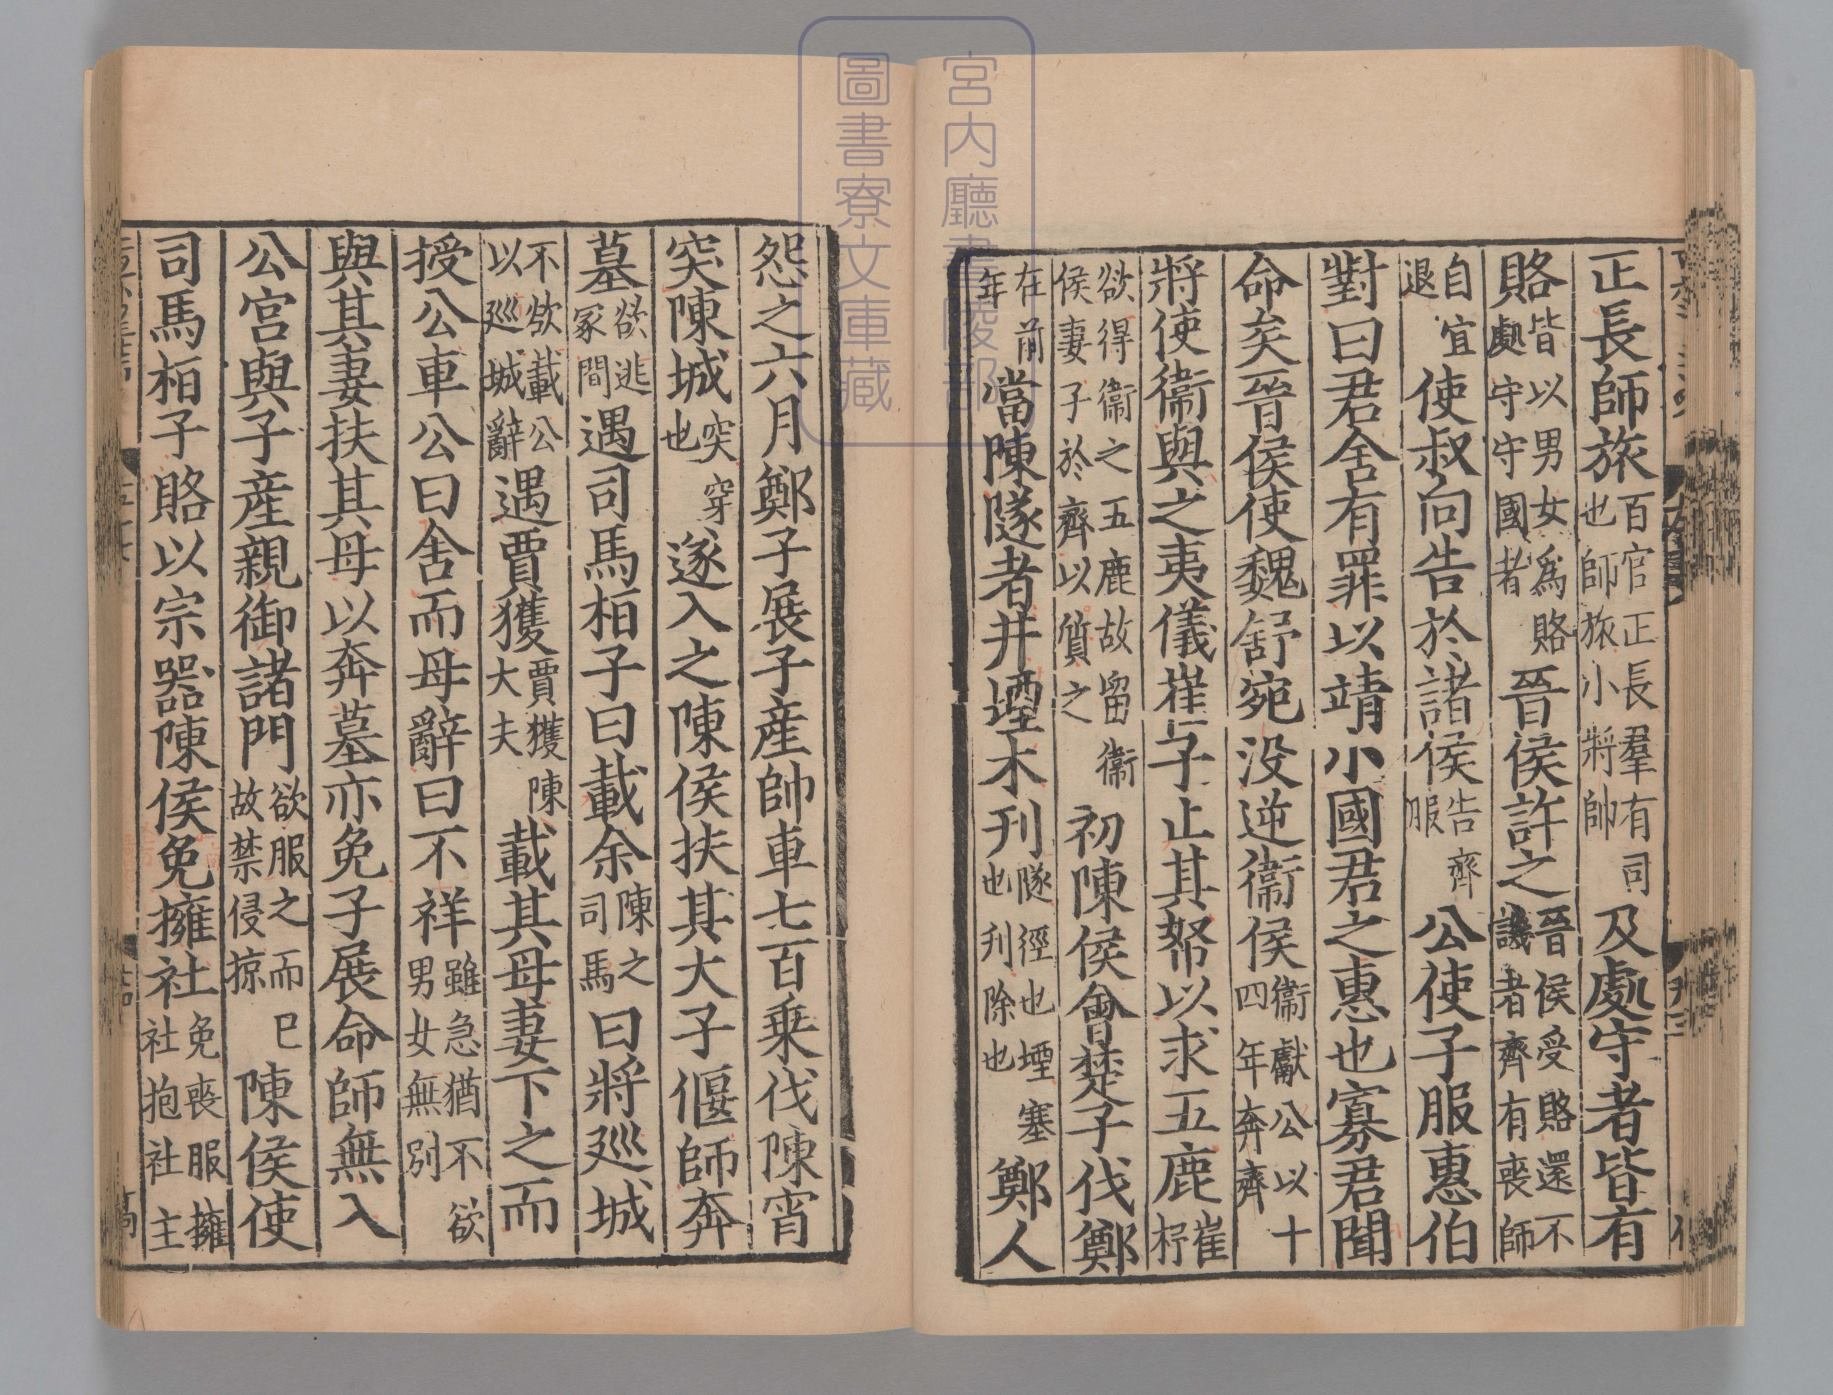 正長師旅百官正長羣有司也師旅小將帥及處守者皆有
賂皆以男女爲賂處守守國者晉侯許之晉侯受賂還不譏者齊有喪師
自宜退使叔向告於諸侯告齊服公使子服惠伯
對曰君舍有罪以靖小國君之惠也寡君聞
命矣晉侯使魏舒宛没逆衞侯衞獻公以十四年奔齊
將使衞與之夷儀崔子止其帑以求五鹿崔杼
欲得衞之五鹿故留衞侯妻子於齊以質之初陳侯會楚子伐鄭
在前年當陳隧者井堙木刊隧徑也堙塞也刋除也鄭人
怨之六月鄭子展子產帥車七百乗伐陳宵
突陳城突穿也遂入之陳侯扶其大子偃師奔
墓欲逃冢間遇司馬桓子曰載余陳之司馬曰將廵城
不欲載公以廵城辭遇賈獲賈獲陳大夫載其母妻下之而
授公車公曰舍而母辭曰不祥雖急猶不欲男女無別
與其妻扶其母以奔墓亦免子展命師無入
公宮與子產親御諸門欲服之而巳故禁侵掠陳侯使
司馬桓子賂以宗器陳侯免擁社免喪服擁社抱社主
宮内廳書陵部
圖書寮文庫藏